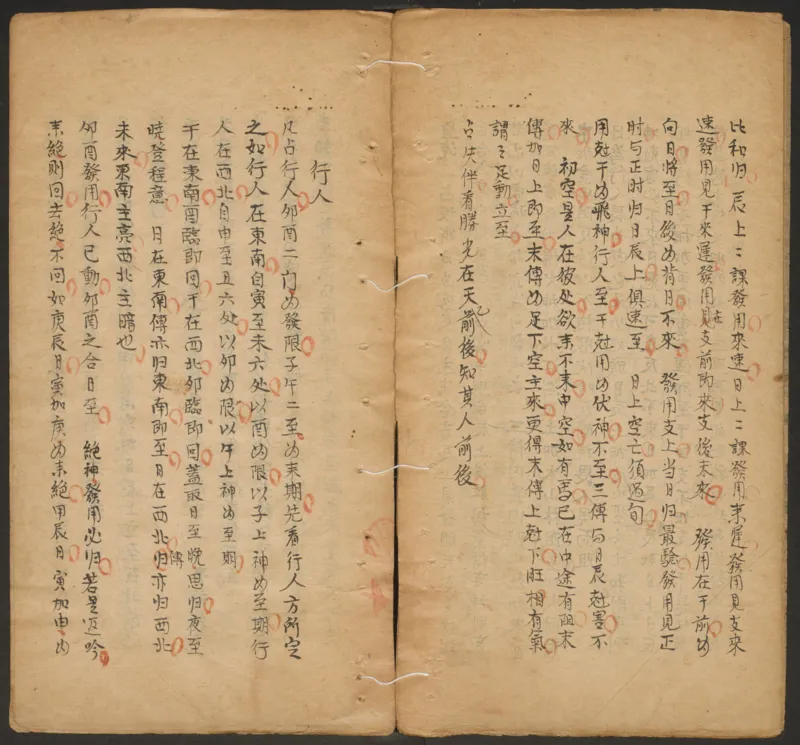 比和归 辰上二課發用來速日上二課發用来遲發用見支來
速發用見干來遲發用見在支前即來支後未來 發用在干前为
向日將至日後为背日不來 發用支上当日归最騐發用見正
时与正时归日辰上俱速至 日上空亡須過旬
用尅干为飛神行人至干尅用为伏神不至三傳与日辰尅害不
來 初空是人在彼处欲来不来中空如有馬已在中途有阻末
傳加日上即至末傳为足下空主來更得末傳上尅下旺相有氣
謂之足動立至
占失伴看勝光在天乙前後知其人前後
行人
凡占行人夘酉二门为發限子午二至为来期先看行人方所定
之如行人在東南自寅至未六处以酉为限以子上神为至期行
人在西北自申至丑六处以夘为限以午上神为至期
干在東南酉臨即回干在西北夘臨即回蓋取日至晚思归夜至
曉登程意 日在東南傳亦归東南即至日在西北傳归亦归西北
未來東南主亮西北主暗也
夘酉發用行人已動夘酉之合日至 絕神發用必归若是迈吟
未絕則回去絕不回如庚辰日寅加庚为未絕甲辰日寅加申为